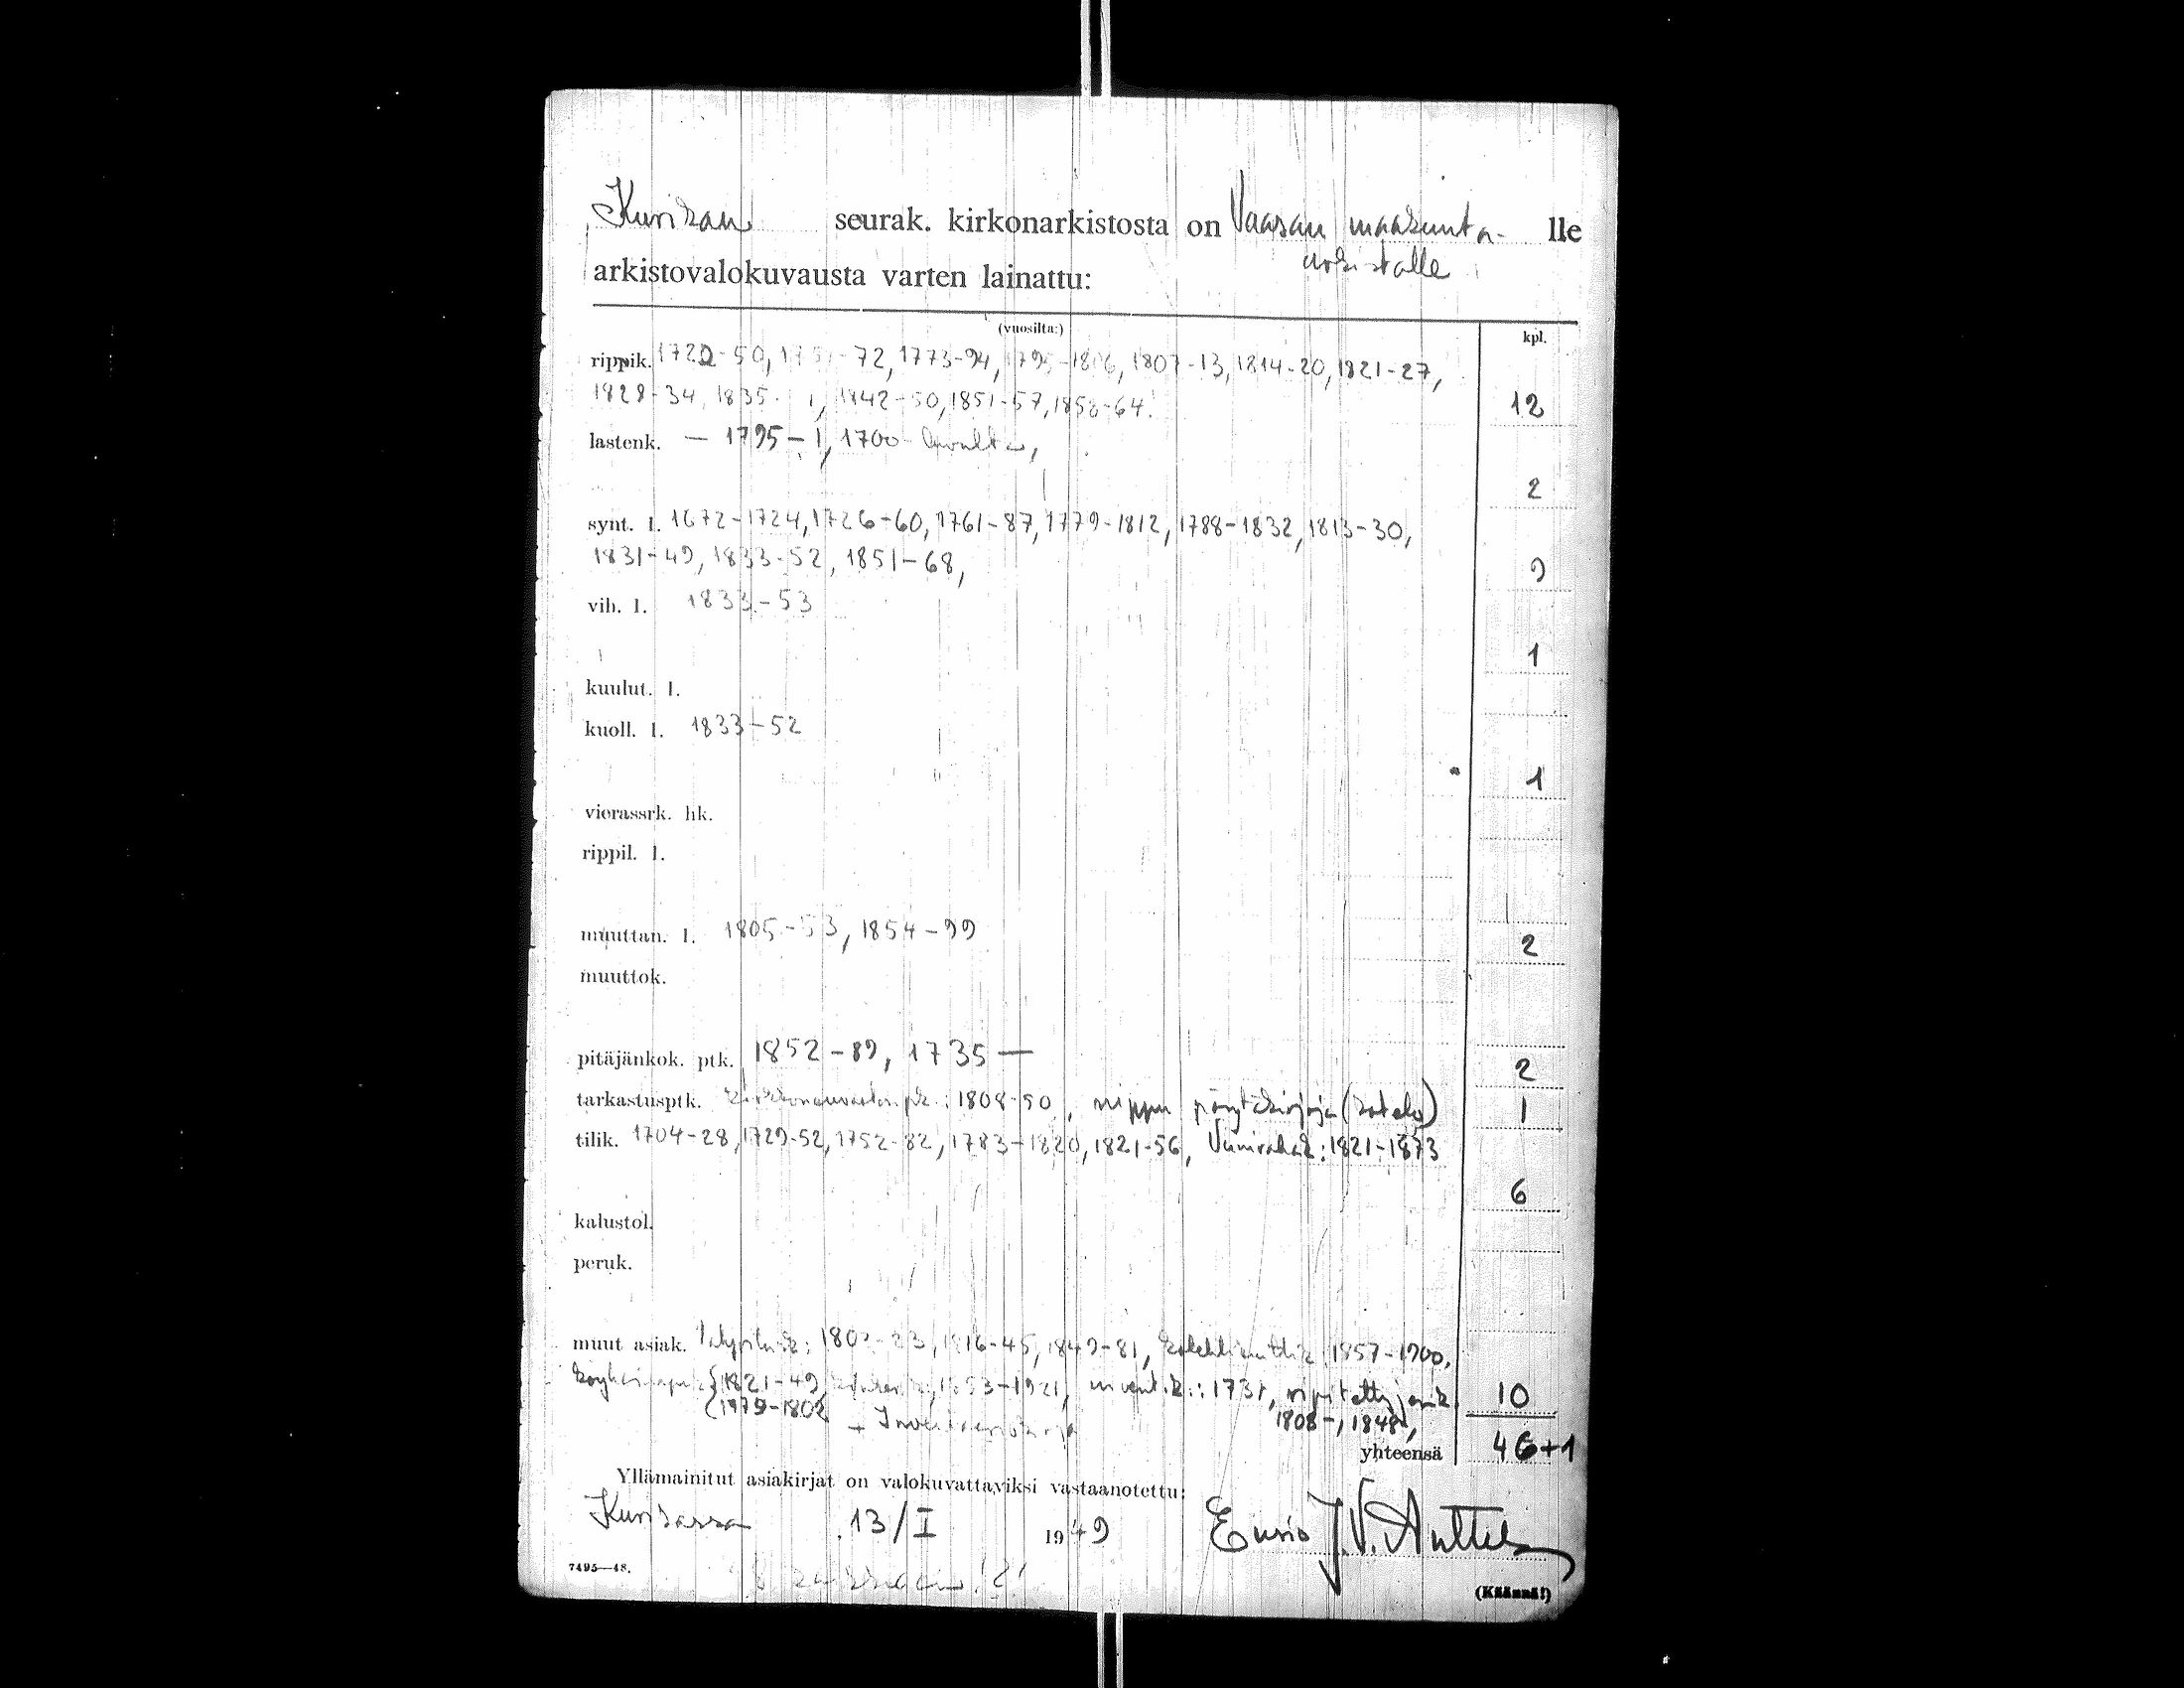 Kurikan seurak. kirkonarkistosta on Vaasan maakunta- lle
arkistolle
arkistovalokuvausta varten lainattu:
(vuosilta:) kpl.
rippik. 1722-50, 1751-72, 1773-94, 1795-1806, 1807-13, 1814-20, 1821-27,
1828-34, 1835- 1842-50, 1851-57, 1858-64. 12
lastenk. — 1795- 1700-luvulta,
2
synt. l. 1672-1724, 1726-60, 1761-87, 1779-1812, 1788-1832, 1813-30,
1831-49, 1833-52, 1851-68, 9
vih. l. 1833-53
1
kuulut. l.
kuoll. l. 1833-52
1
vierassrk. hk.
rippil. l.
muuttan. l. 1805-53, 1854-99 2
muuttok.
pitäjänkok. ptk. 1852-89, 1735— 2
tarkastusptk. 1808-50, nippu pöytäkirjoja (kotelo) 1
tilik. 1704-28, 1729-52, 1752-82, 1783-1820, 1821-56, Viinirahak: 1821-1873
6
kalustol.
peruk.
muut asiak. 1816-45, 1849-81, 1857-1900,
1821-49, 1853-1921, invent.k.: 1731, 10
1808-, 1848,
+ Inventariokirja
yhteensä 46+1
Yllämainitut asiakirjat on valokuvattaviksi vastaanotettu:
Kurikassa 13/I 1949 J.V. Anttila
7495—48.
(Käännä!)